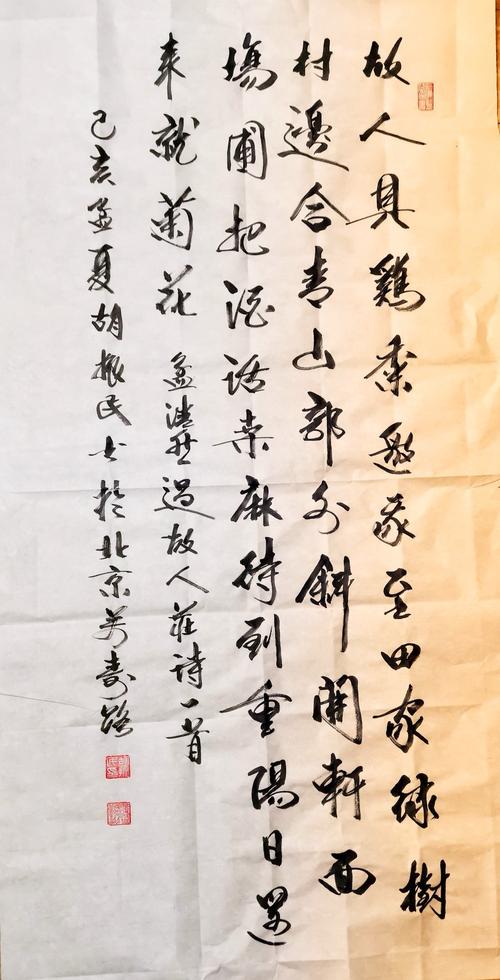 故人具鷄黍邀我至田家綠樹
村邊合青山郭外斜開軒面
場圃把酒話桑麻待到重陽日還
来就菊花 孟浩然過故人莊詩一首
己亥孟夏胡振民书於北京萬壽路